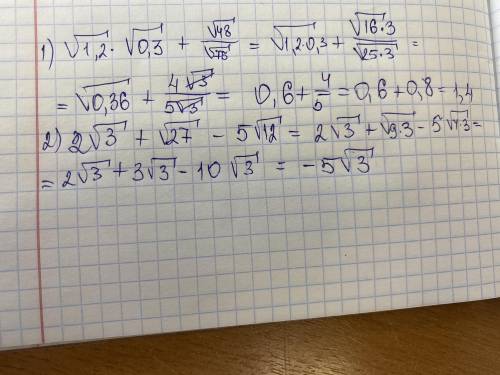 1) √1,2 · √0,3 + √48/√75 = √1,2·0,3 + √16·3/√25·3 =
= √0,36 + 4√3/5√3 = 0,6+4/5=0,6+0,8=1,4
2) 2√3 + √27 - 5√12 = 2√3 + √9·3 - 5√4·3 =
= 2√3 + 3√3 - 10√3 = -5√3